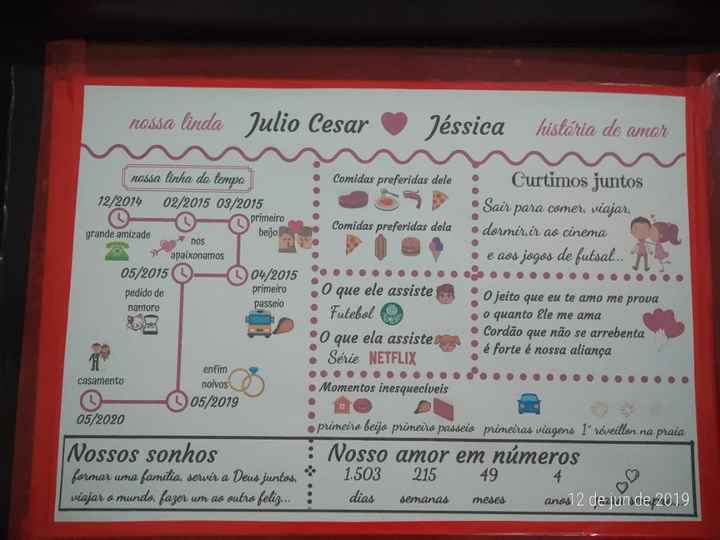 nossa linda Julio Cesar Jéssica história de amor
nossa linha do tempo
12/2014
grande amizade
02/2015
nos
apaixonamos
03/2015
primeiro
beijo
04/2015
primeiro
passeio
05/2015
pedido de
namoro
05/2019
enfim
noivos
casamento
05/2020
Comidas preferidas dele
Comidas preferidas dela
O que ele assiste
Futebol
O que ela assiste
Série NETFLIX
Curtimos juntos
Sair para comer, viajar,
dormir,ir ao cinema
e aos jogos de futsal...
O jeito que eu te amo me prova
o quanto Ele me ama
Cordão que não se arrebenta
é forte é nossa aliança
Momentos inesquecíveis
primeiro beijo primeiro passeio primeiras viagens 1° réveillon na praia
Nossos sonhos
formar uma família, servir a Deus juntos,
viajar o mundo, fazer um ao outro feliz...
Nosso amor em números
1.503 215 49 4
dias semanas meses anos
12 de jun de 2019